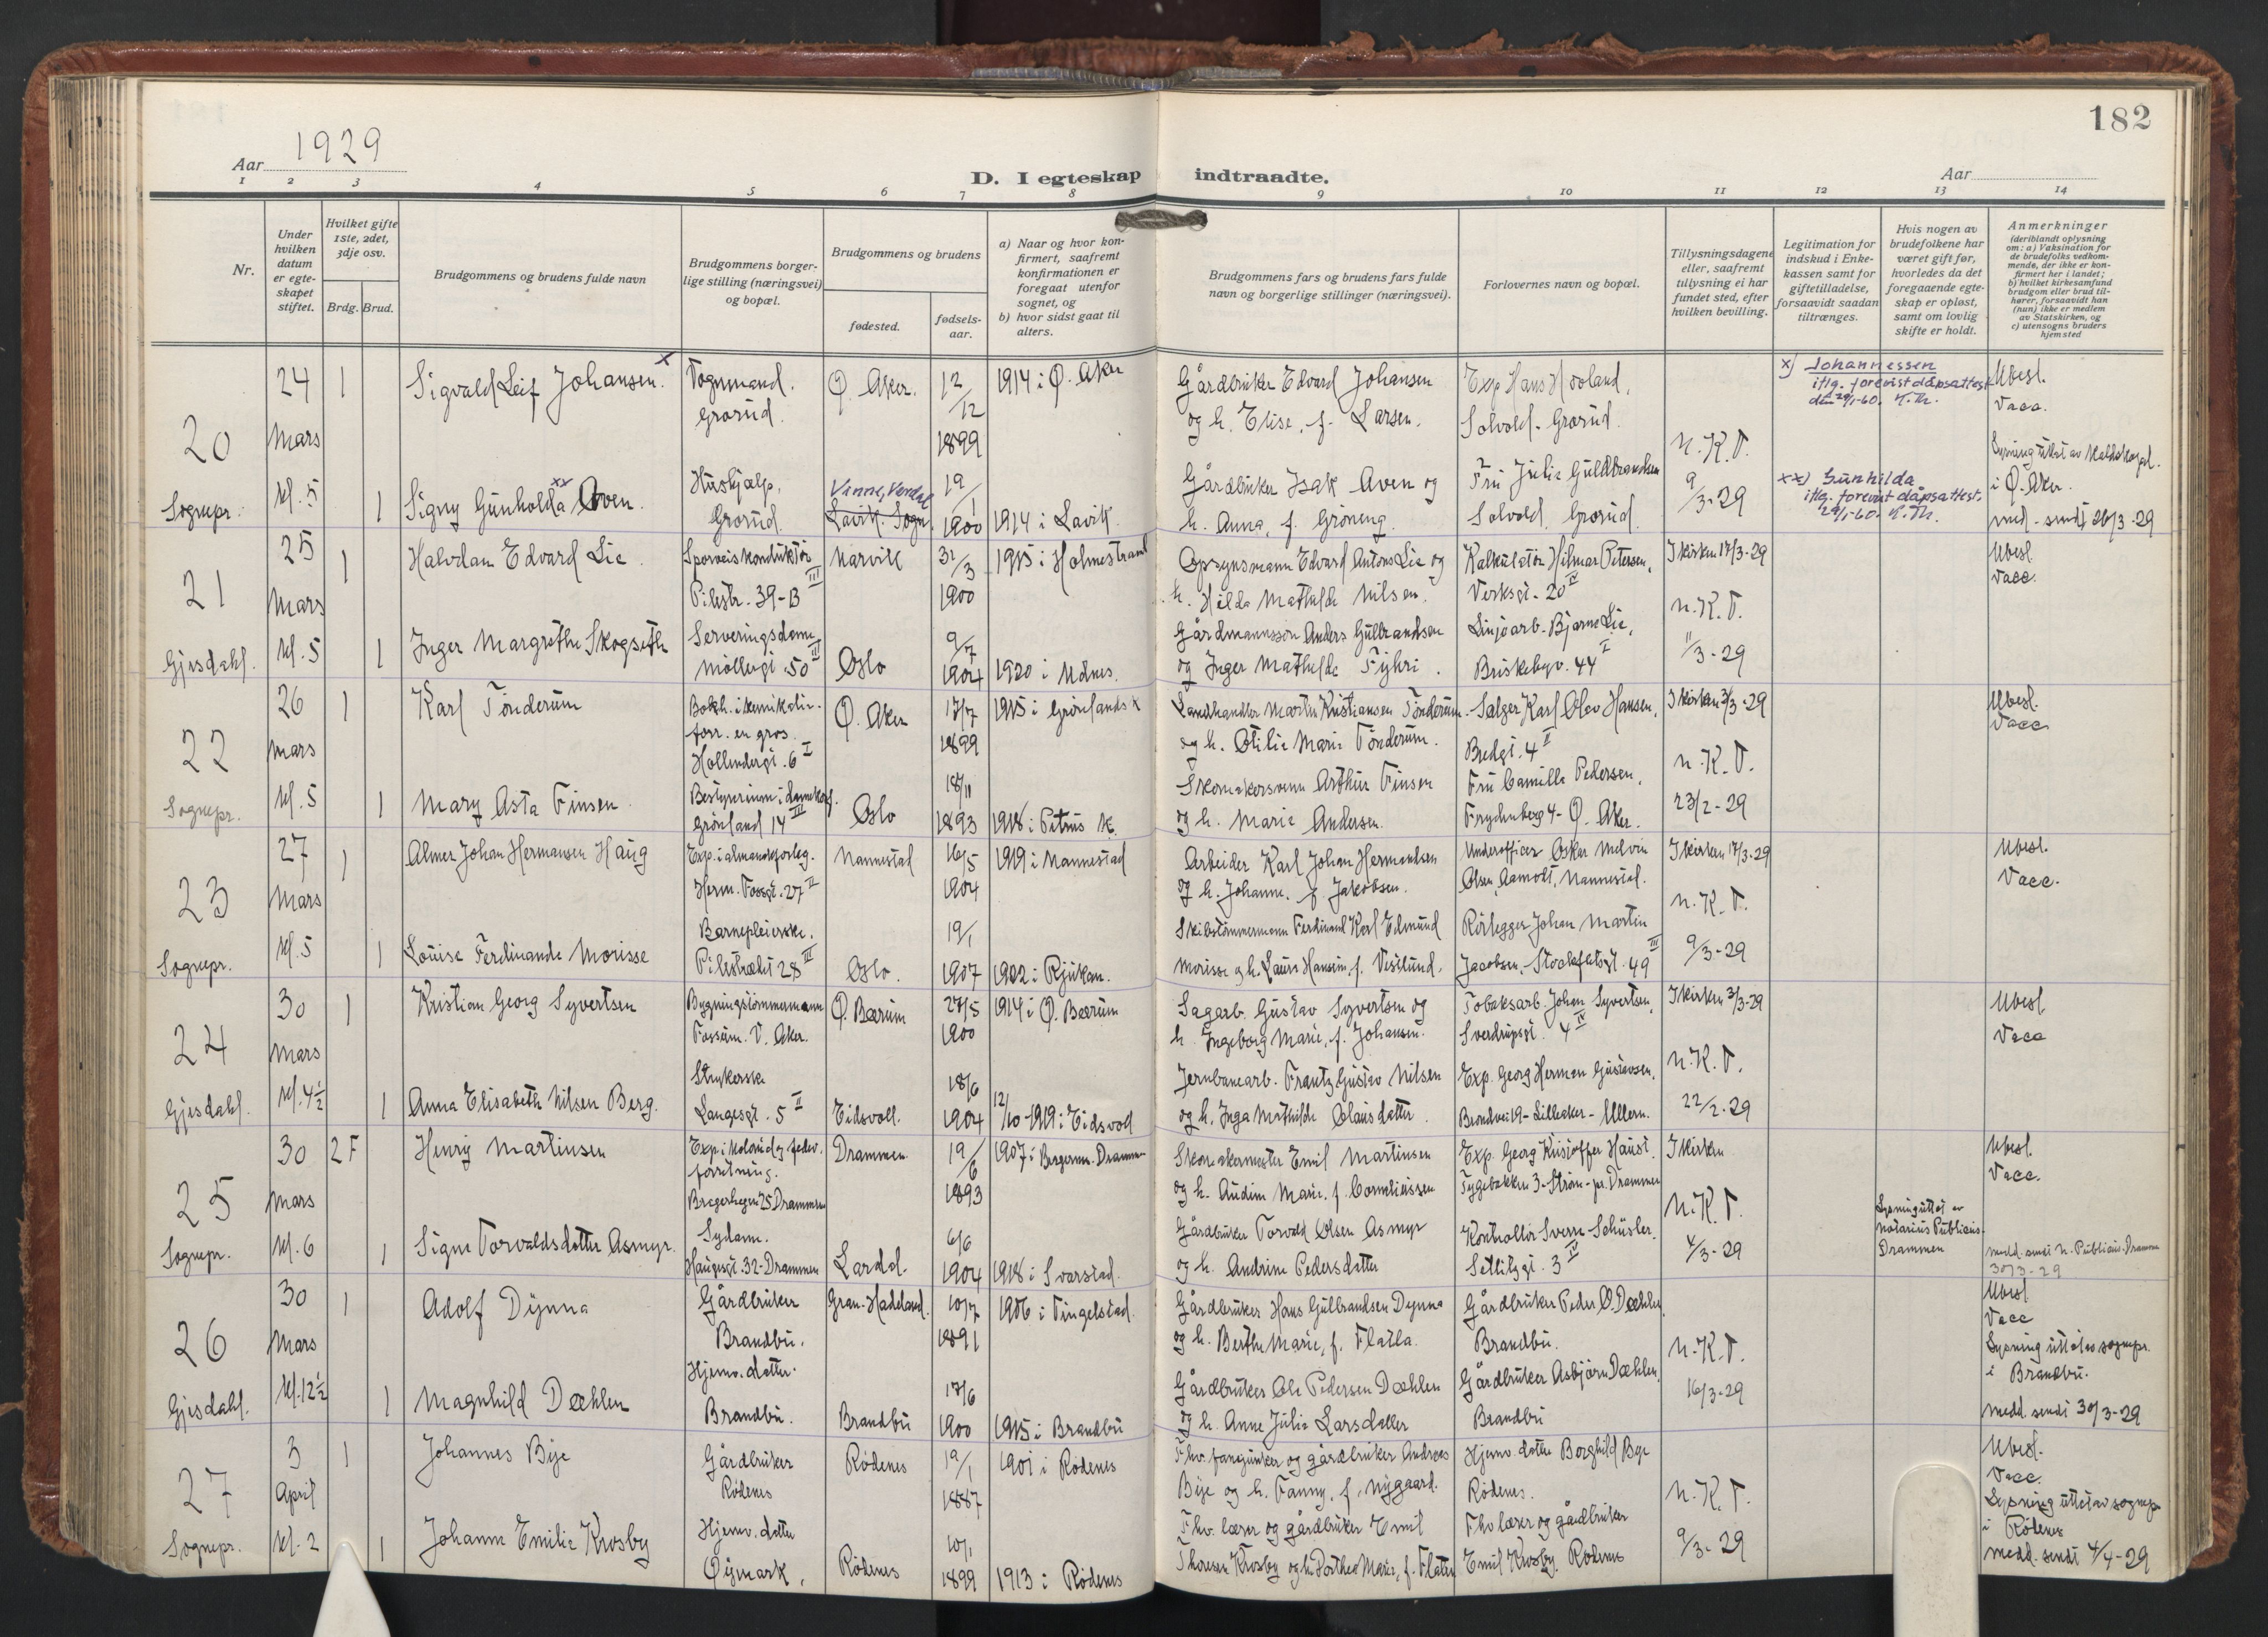 182
Aar 1929
D. I egteskap indtraadte.
Aar
1 2 3 4 5 6 7 8 9 10 11 12 13 14
Nr.
Under hvilken datum er egte- skapet stiftet.
Hvilket gifte 1ste, 2det, 3dje osv.
Brdg. Brud.
Brudgommens og brudens fulde navn
Brudgommens borger- lige stilling (næringsvei) og bopæl.
Brudgommens og brudens
fødested.
fødsels- aar.
a) Naar og hvor kon- firmert, saafremt konfirmationen er foregaat utenfor sognet, og
b) hvor sidst gaat til alters.
Brudgommens fars og brudens fars fulde navn og borgerlige stillinger (næringsvei).
Forlovernes navn og bopæl.
Tillysningsdagene eller, saafremt tillysning ei har fundet sted, efter hvilken bevilling.
Legitimation for indskud i Enke- kassen samt for giftetilladelse, forsaavidt saadan tiltrænges.
Hvis nogen av brudefolkene har været gift før, hvorledes da det foregaaende egte- skap er opløst, samt om lovlig skifte er holdt.
Anmerkninger
(deriblandt oplysning om: a) Vaksination for de brudefolks vedkom- mende, der ikke er kon- firmert her i landet; b) hvilket kirkesamfund brudgom eller brud til- hører, forsaavidt han (hun) ikke er medlem av Statskirken, og c) utensogns bruders hjemsted
20 Sognepr.
24 Mars kl. 5
1 Sigvald Leif Johansen. x
Vognmand. Grorud.
Ø. Aker. 12/12 1899
1914 i Ø. Aker
Gårdbruker Edvard Johansen og h. Elise, f. Larsen.
Exp. Hans Hovland, Solvold - Grorud.
x) Johannessen iflg. forevist dåpsattest den 29/1-60. K.Th.
Ubesl. Vacc.
1 Signy Gunholda xx Aven
Hushjælp, Grorud.
Vinne, Verdal Lavik. Sogn 19/1 1900
1914 i Lavik
Gårdbruker Isak Aven og h. Anna, f. Grøneng.
Fru Julie Guldbrandsen Solvold, Grorud.
N.K.T. 9/3-29
xx) Gunhilda iflg. forevist dåpsattest. 29/1-60. K.Th.
i Ø. Aker. med. sendt 26/3-29
21 Gjesdahl.
25 Mars kl. 5
1 Halvdan Edvard Lie
Sporveiskonduktør Pilestr. 39-B III
Narvik 31/3 1900
1915 i Holmestrand
Opsynsmann Edvard Antons Lie og h. Hilda Mathilde Nilsen.
Kalkulatør Hilmar Petersen, Verksgt. 20 II
I kirken 17/3-29
Ubesl. Vacc.
1 Inger Margrethe Skogseth
Serveringsdame Møllergt. 50 III
Oslo 9/7 1904
1920 i Udnes.
Gårdmannssøn Anders Gulbrandsen og Inger Mathilde Fyhri.
Linjearb. Bjarne Lie, Briskebyv. 44 I
N.K.T. 11/3-29
22 Sognepr.
26 Mars kl. 5
1 Karl Tønderum
forr. en gros. Hollendergt. 6 I
Ø. Aker 17/7 1899
1915 i Grønlands k
Landhandler Martin Kristiansen Tønderum og h. Otilie Marie Tønderum.
Selger Karl Olav Hansen, Bredgt. 4 II
I kirken 3/3-29
Ubesl. Vacc
1 Mary Asta Finsen
Grønland 14 III
Oslo 18/11 1893
1918 i Petrus k.
Skomakersvenn Arthur Finsen og h. Marie Andersen.
Fru Camilla Pedersen, Frydenberg 4 - Ø. Aker.
N.K.T. 23/2-29
23 Sognepr.
27 Mars kl. 5
1 Almer Johan Hermansen Haug
Herm. Fossgt. 27 II
Nannestad 16/5 1904
1919 i Nannestad
Arbeider Karl Johan Hermansen og h. Johanne, f. Jakobsen.
Underofficer Oskar Melvin Olsen, Aamodt, Nannestad.
I kirken 17/3-29
Ubesl. Vacc.
1 Louise Ferdinande Morisse
Barnepleierske. Pilestrædet 28 III
Oslo. 19/1 1907
1922 i Rjukan.
Skibstømmermann Ferdinand Karl Edmund Morisse og h. Laura Hansine, f. Vestlund.
Rørlegger Johan Martin Jacobsen, Stockfletsgt. 49 III
N.K.T. 9/3-29
24 Gjesdahl.
30 Mars kl. 4½
1 Kristian Georg Syvertsen
Bygningstømmermann Fossum. V. Aker.
Ø. Bærum 27/5 1900
1914 i Ø. Bærum
Sagarb. Gustav Syvertsen og h. Ingeborg Marie, f. Johansen.
Tobaksarb. Johan Syvertsen, Sverdrupsgt. 4 IV
I kirken 3/3-29
Ubesl. Vacc
1 Anna Elisabeth Nilsen Berg.
Strykerske Langesgt. 5 II
Eidsvoll. 18/6 1904
12/10-1919 i Eidsvoll
Jernbanearb. Frantz Gustav Nilsen og h. Inga Mathilde Olausdatter
Exp. Georg Herman Gustavsen, Brendvei 19 - Lilleaker - Ullern.
N.K.T. 22/2-29
25 Sognepr.
30 Mars kl. 6
2 F Henry Martinsen
forretning. Bragerhagen 25 Drammen
Drammen 19/6 1893
1907 i Bragernes. Drammen
Skomakermester Emil Martinsen og h. Audine Marie, f. Corneliussen
Exp. Georg Kristoffer Haust. Tygebakken 3 - Strøm - pr. Drammen
I kirken
Ubesl. Vacc.
1 Signe Torvaldsdatter Asmyr.
Sydame. Haugesgt. 32 - Drammen
Lardal. 6/6 1904
1918 i Svarstad.
Gårdbruker Torvald Olsen Asmyr og h. Andrine Pedersdatter
Kontrollør Sverre Schüsler, Seilduksgt. 3 IV
N.K.T. 4/3-29
Lysning uttat av Notarius Publicus Drammen
medd. sendt N. Publicus Drammen 30/3-29
26 Gjesdahl.
30 Mars kl. 12½
1 Adolf Dynna
Gårdbruker Brandbu.
Gran - Hadeland. 10/7 1891
1906 i Tingelstad.
Gårdbruker Hans Gulbrandsen Dynna og h. Berthe Marie, f. Flatla.
Gårdbruker Peder O. Dæhlen Brandbu.
Ubesl. Vacc
Lysning uttat av sognepr. i Brandbu.
1 Magnhild Dæhlen
Hjemv. datter. Brandbu.
Brandbu 17/6 1900
1915 i Brandbu
Gårdbruker Ole Pedersen Dæhlen og h. Anne Julie Larsdatter
Gårdbruker Asbjørn Dæhlen, Brandbu
N.K.T. 16/3-29
medd. sendt 30/3-29
27 Sognepr.
3 April kl. 2
1 Johannes Bye
Gårdbruker Rødenes
Rødenes 19/1 1887
1901 i Rødenes
Fhv. fanejunker og gårdbruker Andreas Bye og h. Fanny, f. Nygaard.
Hjemv. datter Borghild Bye Rødenes.
Ubesl. Vacc.
Lysning uttat av sognepr. i Rødenes
1 Johanne Emilie Krosby
Hjemv. datter Øymark,
Rødenes 10/1 1899
1913 i Rødenes
Fhv. lærer og gårdbruker Emil Thoresen Krosby og h. Dorthea Marie, f. Flaten
Fhv lærer og gårdbruker Emil Krosby. Rødenes
N.K.T. 9/3-29
medd. sendt 4/4-29